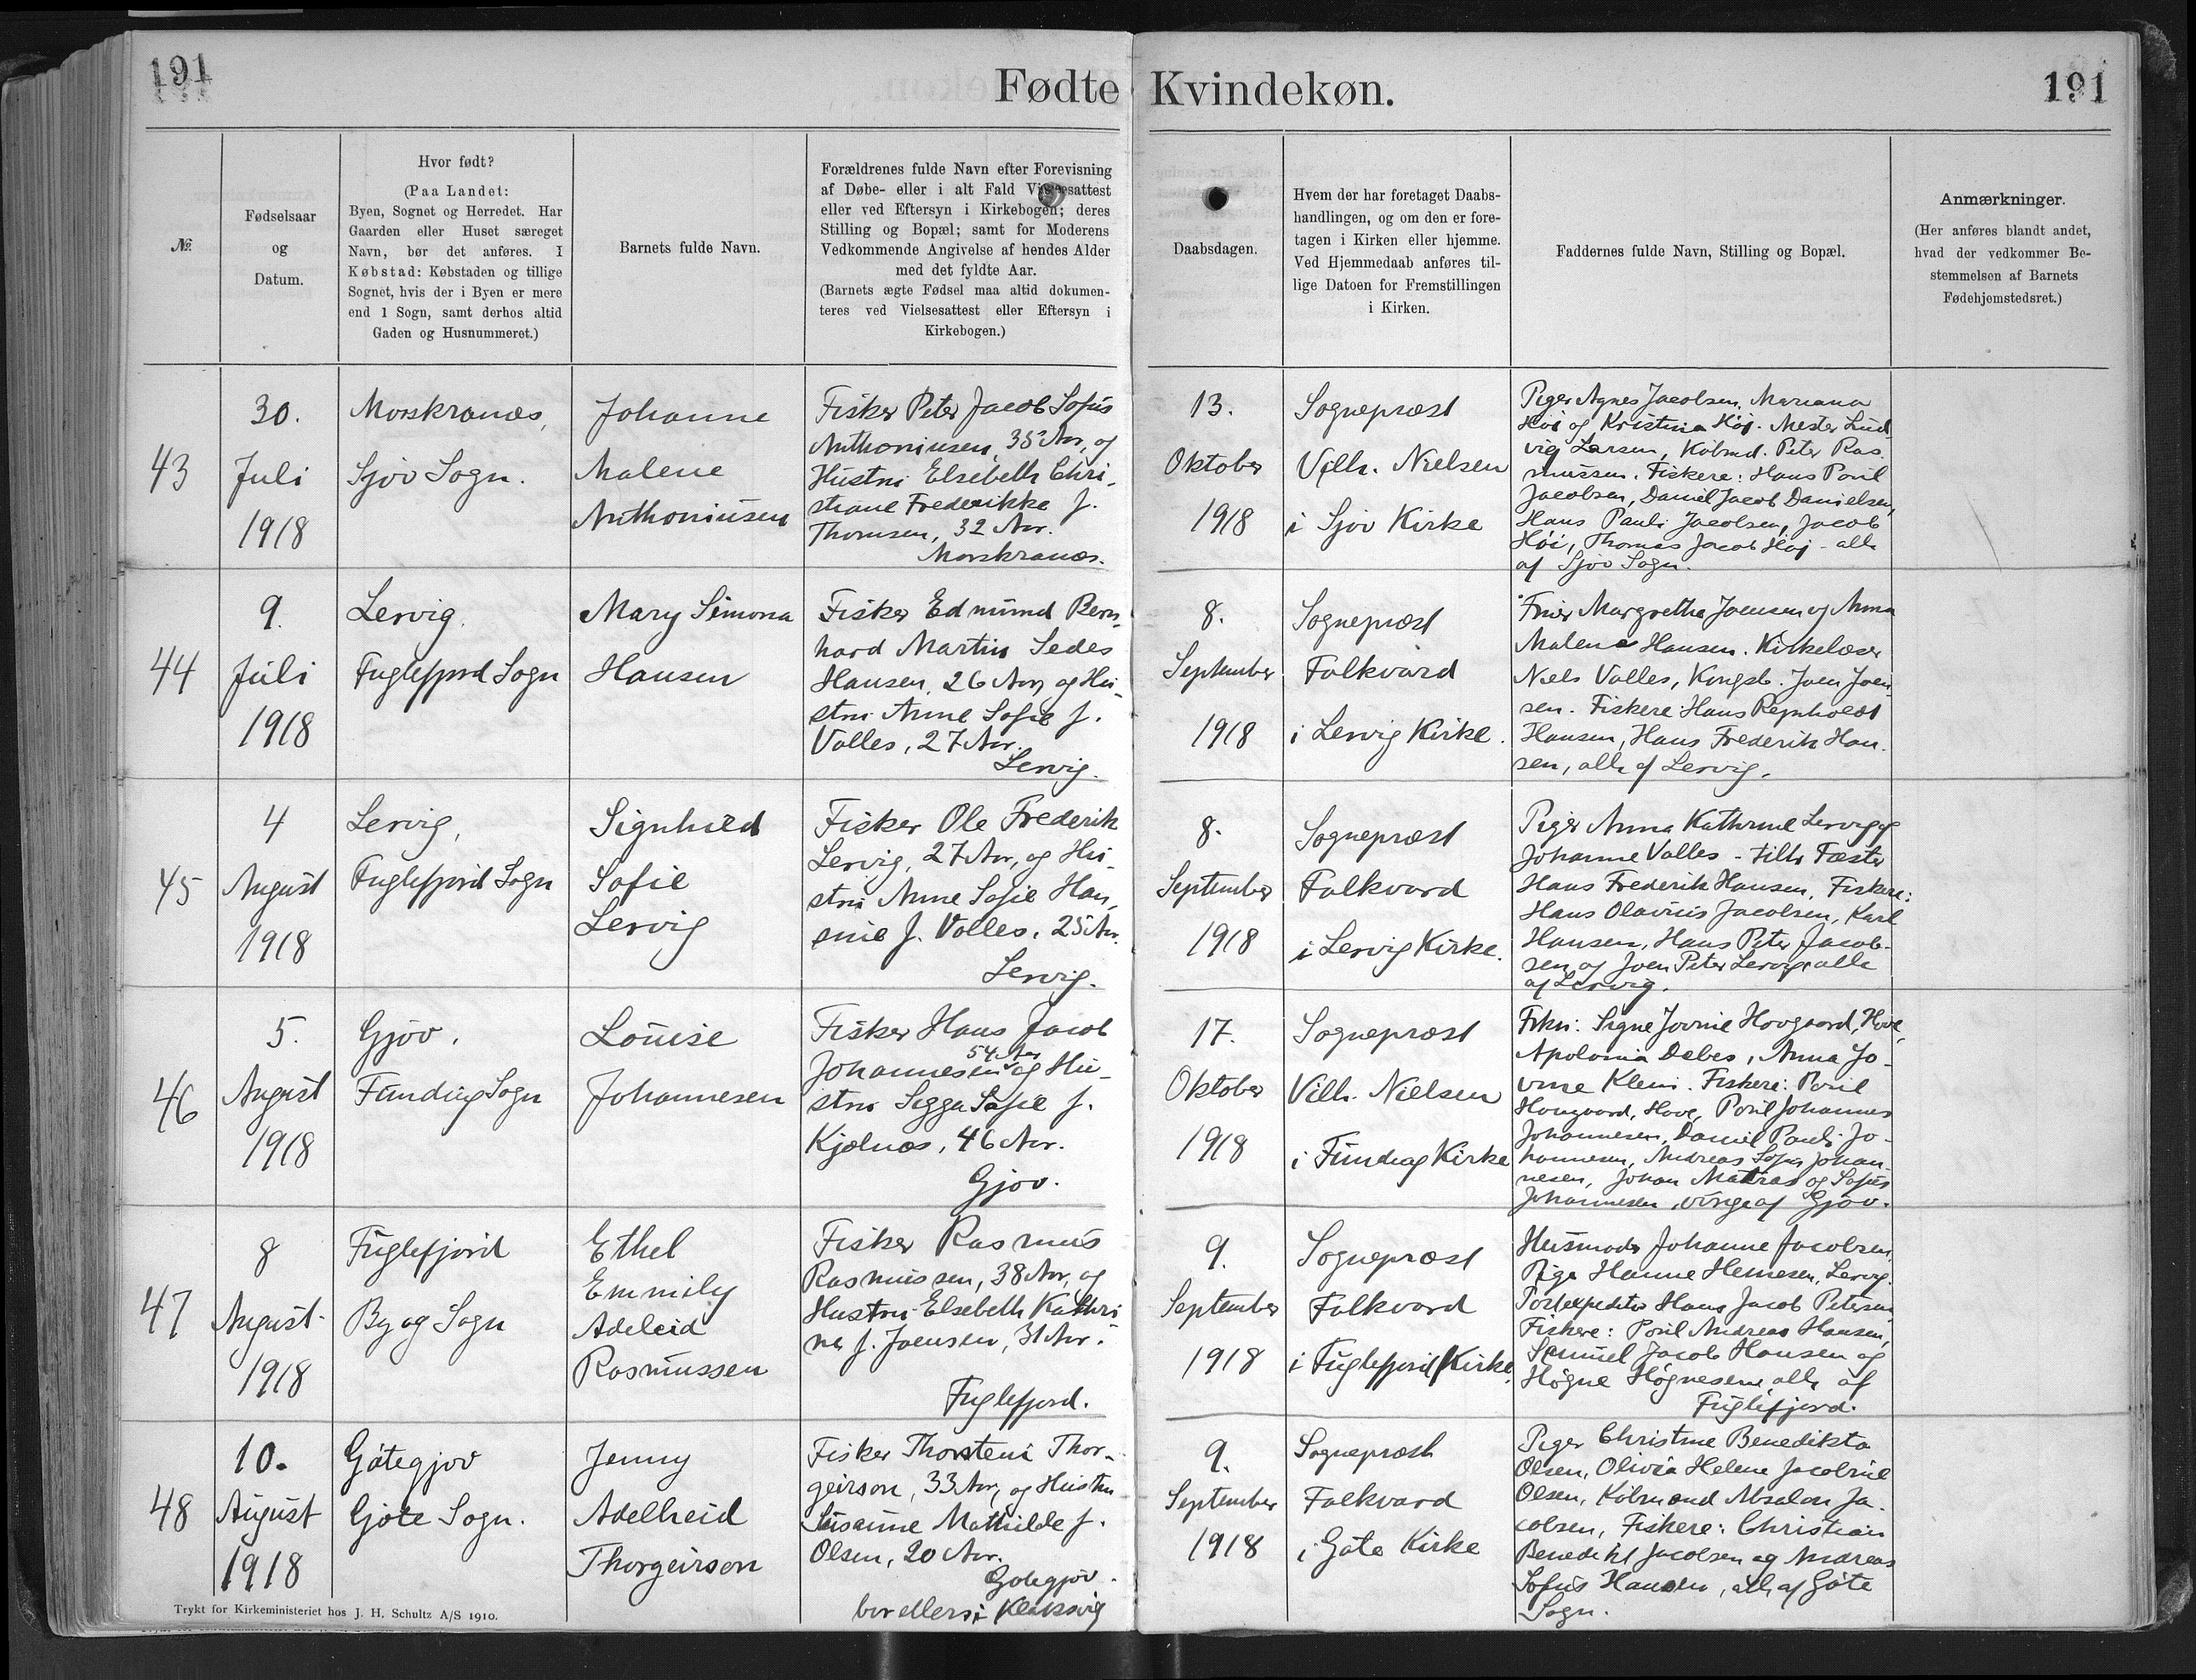 191
Fødte Kvindekøn.
191
№
Fødselsaar
og
Datum.
Hvor født?
(Paa Landet:
Byen, Sognet og Herredet. Har
Gaarden eller Huset særeget
Navn, bør det anføres. I
Købstad: Købstaden og tillige
Sognet, hvis der i Byen er mere
end 1 Sogn, samt derhos altid
Gaden og Husnummeret.)
Barnets fulde Navn.
Forældrenes fulde Navn efter Forevisning
af Døbe- eller i alt Fald Vielsesattest
eller ved Eftersyn i Kirkebogen; deres
Stilling og Bopæl; samt for Moderens
Vedkommende Angivelse af hendes Alder
med det fyldte Aar.
(Barnets ægte Fødsel maa altid dokumen-
teres ved Vielsesattest eller Eftersyn i
Kirkebogen.)
Daabsdagen.
Hvem der har foretaget Daabs-
handlingen, og om den er fore-
tagen i Kirken eller hjemme.
Ved Hjemmedaab anføres til-
lige Datoen for Fremstillingen
i Kirken.
Faddernes fulde Navn, Stilling og Bopæl.
Anmærkninger.
(Her anføres blandt andet,
hvad der vedkommer Be-
stemmelsen af Barnets
Fødehjemstedsret.)
43
30.
Juli
1918
Morskranæs,
Sjov Sogn.
Johanne
Malene
Anthoniusen
Fisker Peter Jacob Sofus
Anthoniusen, 35 Aar, og
Hustru Elsebeth Chri-
stiane Frederikke f.
Thomsen, 32 Aar.
Morskranæs.
13.
Oktober
1918
Sognepræst
Vilh. Nielsen
i Sjov Kirke
Piger Agnes Jacobsen, Mariana
Høj og Kristina Høj. Mester Lud-
vig Larsen, Købmd. Peter Ras-
mussen. Fiskere: Hans Poul
Jacobsen, Daniel Jacob Danielsen,
Hans Pauli Jacobsen, Jacob
Høj, Thomas Jacob Høj - alle
af Sjov Sogn.
44
9.
Juli
1918
Lervig.
Fuglefjord Sogn
Mary Simona
Hansen
Fisker Edmund Bern-
hard Martin Sedes
Hansen, 26 Aar, og Hu-
stru Anne Sofie f.
Valles, 27 Aar.
Lervig.
8.
September
1918
Sognepræst
Falkvard
i Lervig Kirke.
Fruer Margretha Joensen og Anna
Malena Hansen. Kirkelæser
Niels Valles, Kongsb. Joen Joen-
sen. Fiskere Hans Reinholdt
Hansen, Hans Frederik Han-
sen, alle af Lervig.
45
4
August
1918
Lervig,
Fuglefjord Sogn
Signhild
Sofie
Lervig
Fisker Ole Frederik
Lervig, 27 Aar, og Hu-
stru Anne Sofie Han-
sine f. Valles, 25 Aar.
Lervig.
8.
September
1918
Sognepræst
Falkvard
i Lervig Kirke.
Piger Anna Kathrine Lervig og
Johanne Valles -
Hans Frederik Hansen, Fiskere:
Hans Olavius Jacobsen, Karl
Hansen, Hans Peter Jacob-
sen og Joen Peter Lervig alle
af Lervig.
46
5.
August
1918
Gjov.
Funding Sogn
Louise
Johannesen
Fisker Hans Jacob
54 Aar
Johannesen og Hu-
stru Sigga Sofie f.
Kjølnæs, 46 Aar.
Gjov.
17.
Oktober
1918
Sognepræst
Vilh. Nielsen
i Funding Kirke
Signe Jovine Hovgaard, Hove,
Apolonia Debes, Anna Jo-
vine Klein. Fiskere: Poul
Hovgaard, Hove, Poul Johannes
Johannesen, Daniel Pauli Jo-
hannesen, Andreas Sofus Johan-
nesen, Johan Matras og Sofus
Johannesen, af Gjov.
47
8
August
1918
Fuglefjord
By og Sogn
Ethel
Emmily
Adeleid
Rasmussen
Fisker Rasmus
Rasmussen, 38 Aar, og
Hustru Elsebeth Kathri-
na f. Joensen, 31 Aar.
Fuglefjord.
9.
September
1918
Sognepræst
Falkvard
i Fuglefjord Kirke.
Husmoder Johanne Jacobsen,
Pige Hanne Hennesen, Lervig.
Postexpeditør Hans Jacob Petersen,
Fiskere: Poul Andreas Hansen,
Samuel Jacob Hansen og
Høgne Høgnesen, alle af
Fuglefjord.
48
10.
August
1918
Gøtegjov
Gøte Sogn.
Jenny
Adelheid
Thorgeirson
Fisker Thorstein Thor-
geirson, 33 Aar, og Hustru
Susanne Mathilde f.
Olsen, 20 Aar.
Gøtegjov.
bor ellers i Klaksvig
9.
September
1918
Sognepræst
Falkvard
i Gøte Kirke
Piger Christine Benedikta
Olsen, Olivia Helene Jacobine
Olsen, Købmand Absalon Ja-
cobsen, Fiskere: Christian
Benedikt Jacobsen og Andreas
Sofus Hansen, alle af Gøte
Sogn.
Trykt for Kirkeministeriet hos J. H. Schultz A/S 1910.